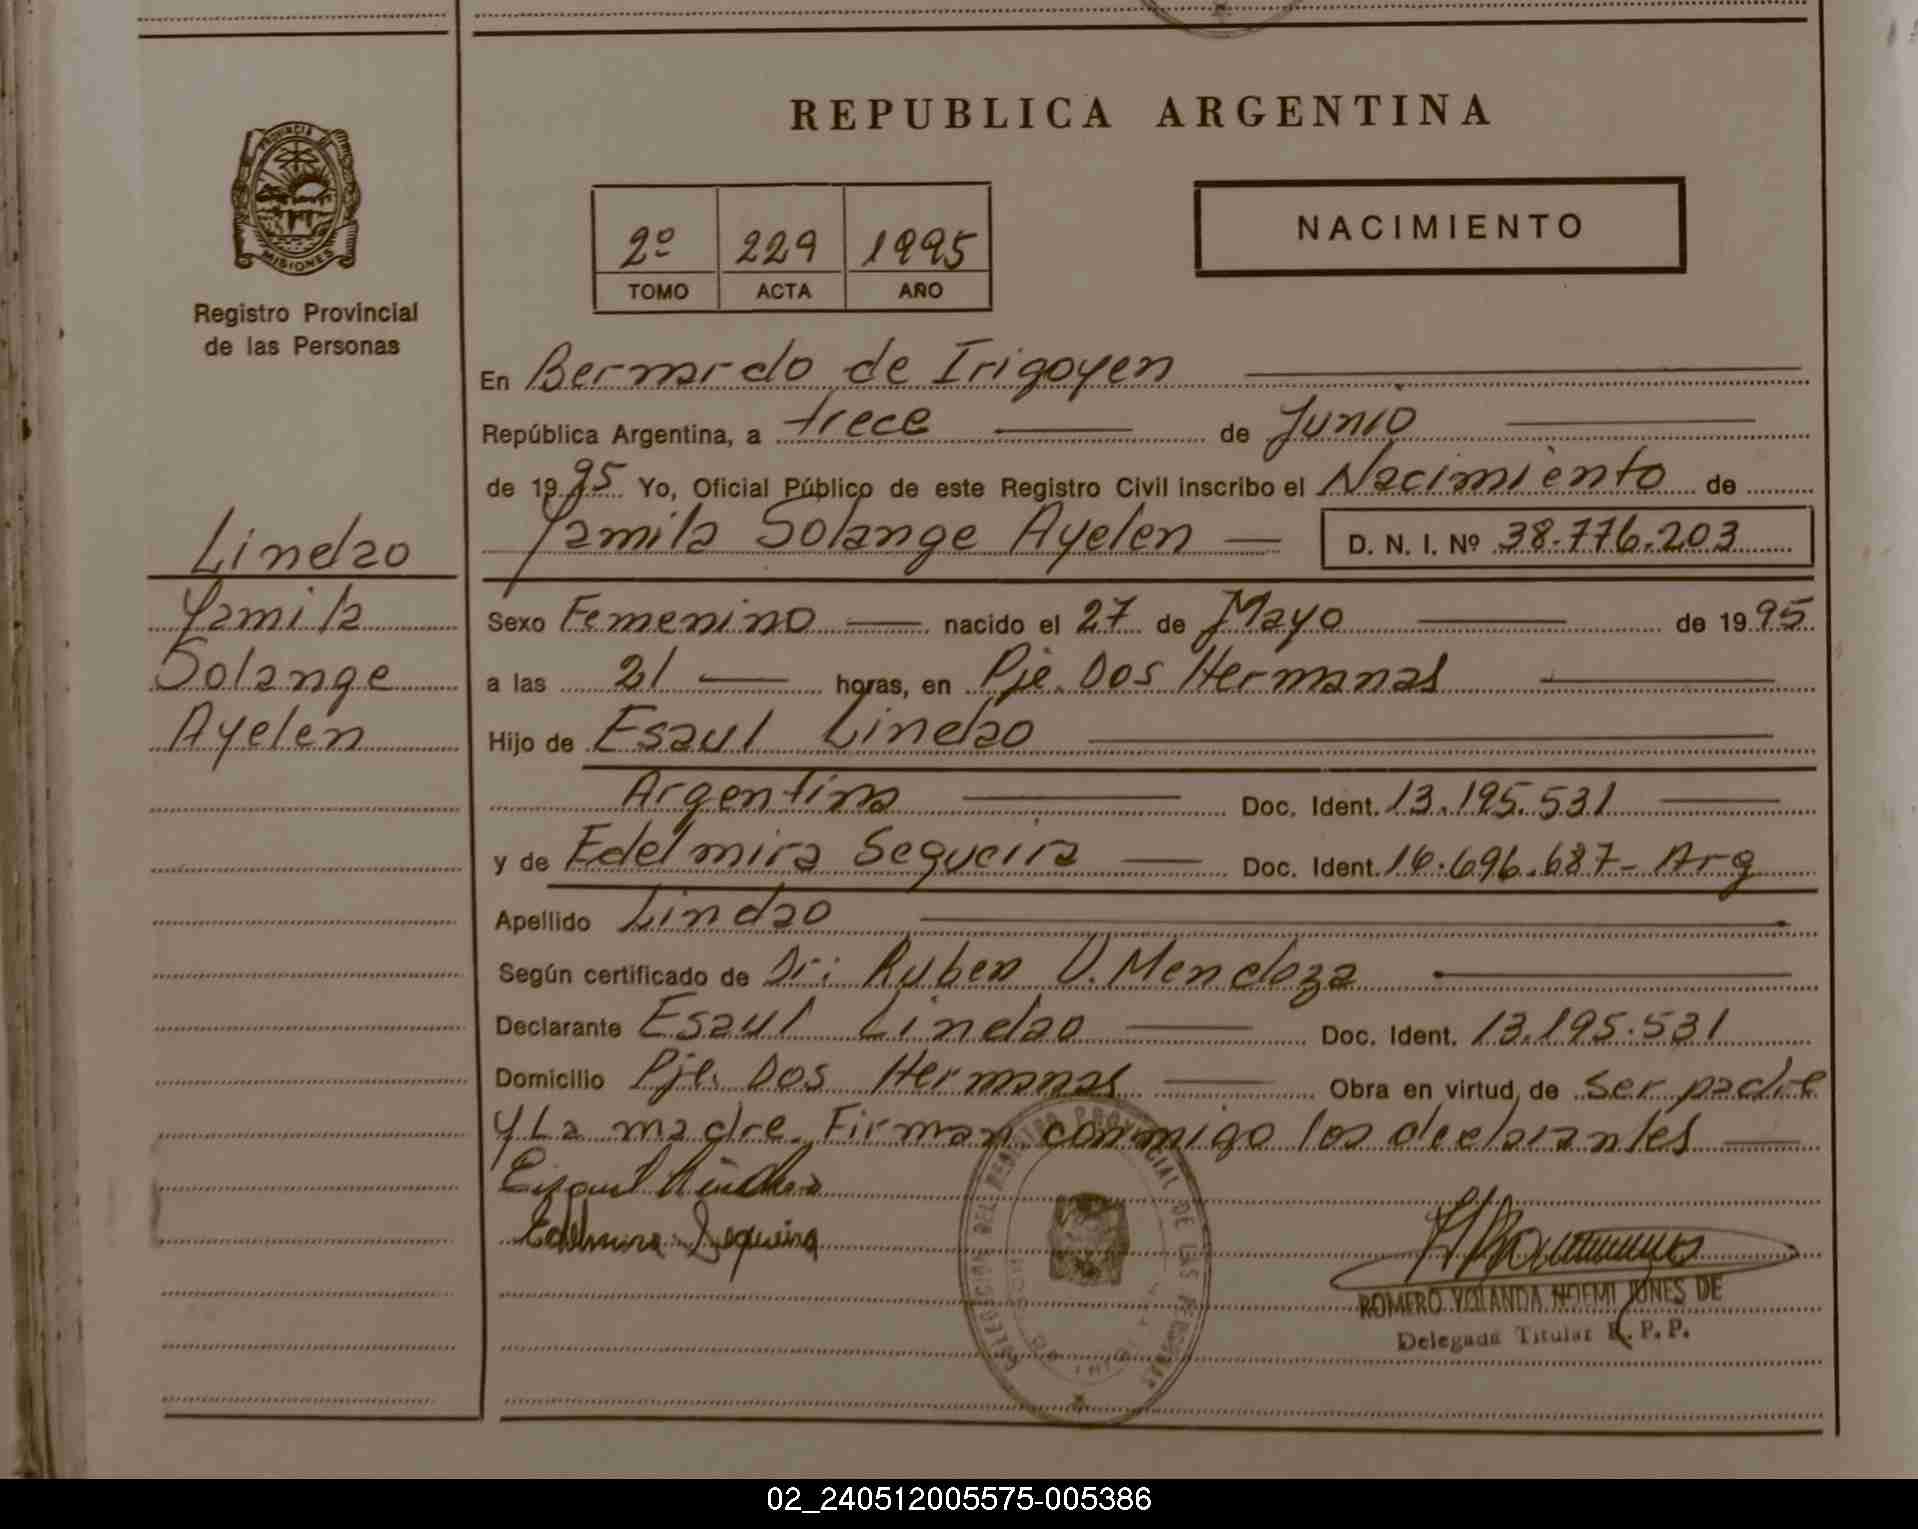 REPUBLICA ARGENTINA
PROVINCIA
MISIONES
Registro Provincial
de las Personas
2º 229 1995
TOMO ACTA AÑO
NACIMIENTO
En Bernardo de Irigoyen
República Argentina, a trece de Junio
de 1995 Yo, Oficial Público de este Registro Civil inscribo el Nacimiento de
Yamila Solange Ayelen D. N. I. Nº 38.776.203
Lindao
Yamila
Solange
Ayelen
Sexo Femenino nacido el 27 de Mayo de 1995
a las 21 horas, en Pje. Dos Hermanas
Hijo de Esaul Lindao
Argentina Doc. Ident. 13.195.531
y de Edelmira Sequeira Doc. Ident. 16.696.687- Arg
Apellido Lindao
Según certificado de Dr: Ruben V. Mendoza
Declarante Esaul Lindao Doc. Ident. 13.195.531
Domicilio Pje. Dos Hermanas Obra en virtud de ser padre
y La madre. Firman conmigo los declarantes
Edelmira Sequeira
REGISTRO PROVINCIAL DE LAS PERSONAS
ROMERO YOLANDA NOEMI JONES DE
Delegada Titular R. P. P.
02_240512005575-005386